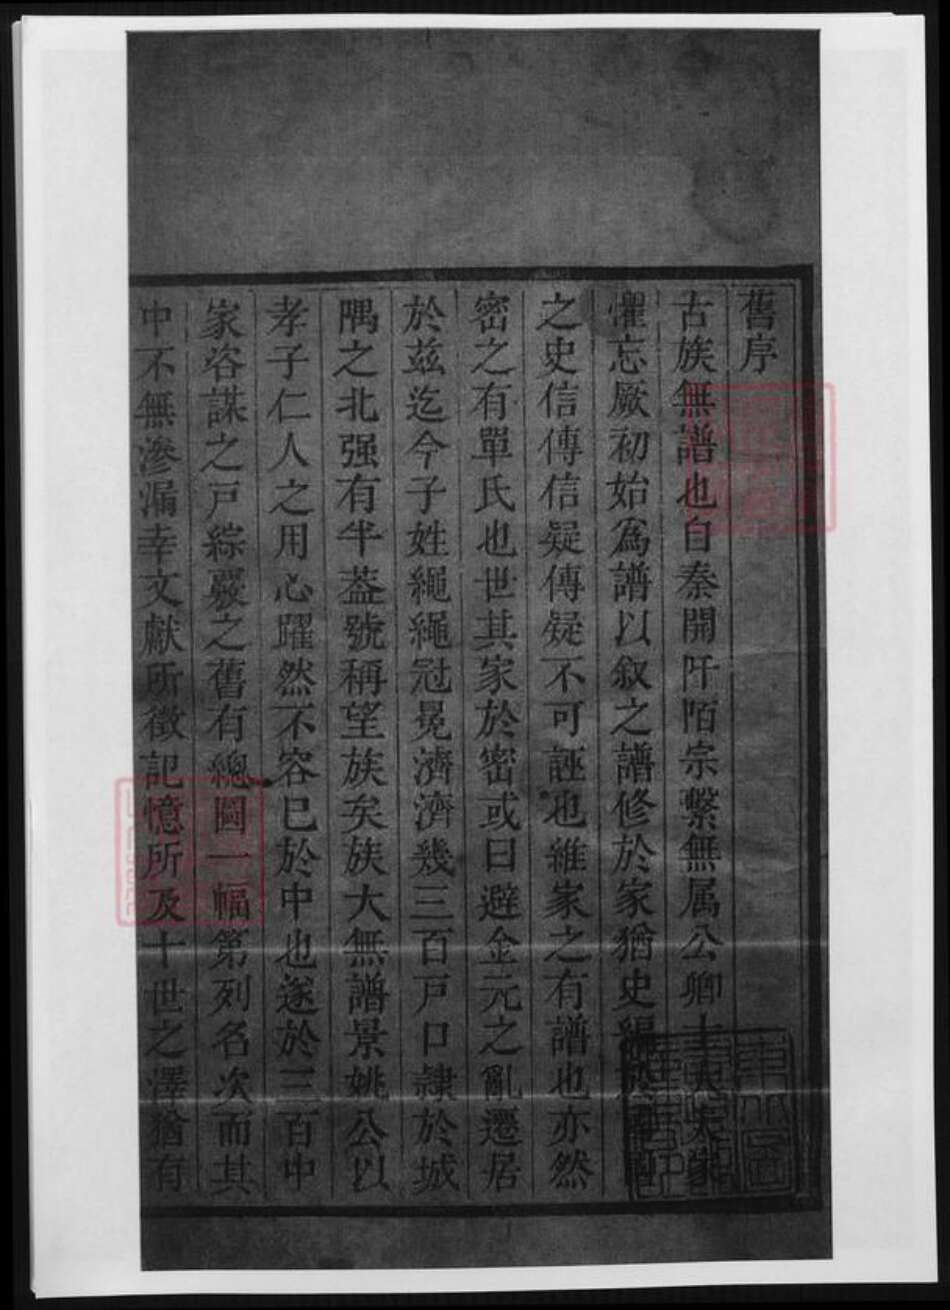 舊序
古族無譜也自秦開阡陌宗繫無属公卿士大夫家
懼忘厥初始爲譜以叙之譜修於家猶史編於國
之史信傳信疑傳疑不可誣也維家之有譜也亦然
密之有單氏也世其家於密或曰避金元之亂遷居
於兹迄今子姓繩繩冠冕濟濟幾三百戸口隸於城
隅之北强有半葢號稱望族矣族大無譜景姚公以
孝子仁人之用心躍然不容已於中也遂於三百中
家咨謀之戸綜覈之舊有總圖一幅第列名次而其
中不無滲漏幸文獻所徵記憶所及十世之澤猶有